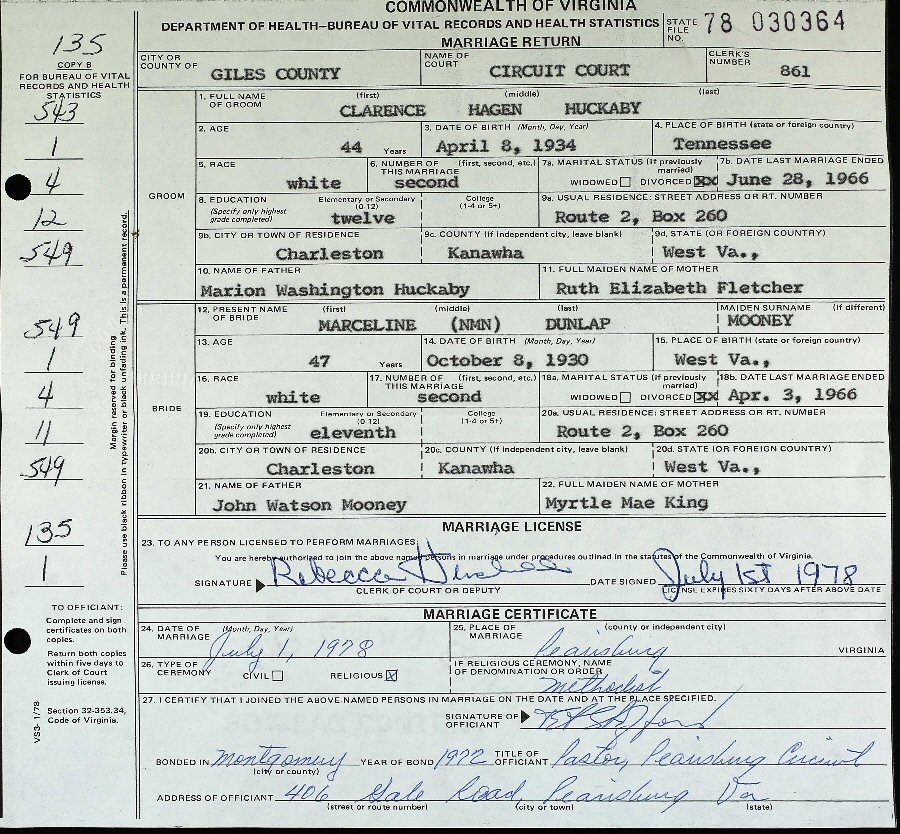 COMMONWEALTH OF VIRGINIA
DEPARTMENT OF HEALTH—BUREAU OF VITAL RECORDS AND HEALTH STATISTICS
STATE FILE NO. 78 030364
MARRIAGE RETURN
135
COPY B
FOR BUREAU OF VITAL
RECORDS AND HEALTH
STATISTICS
543
1
4
12
549
549
1
4
11
549
135
1
Margin reserved for binding
Please use black ribbon in typewriter or black unfading ink. This is a permanent record.
CITY OR COUNTY OF GILES COUNTY NAME OF COURT CIRCUIT COURT CLERK'S NUMBER 861
GROOM
1. FULL NAME OF GROOM (first) (middle) (last)
CLARENCE HAGEN HUCKABY
2. AGE 3. DATE OF BIRTH (Month, Day, Year) 4. PLACE OF BIRTH (state or foreign country)
44 Years April 8, 1934 Tennessee
5. RACE 6. NUMBER OF THIS MARRIAGE (first, second, etc.) 7a. MARITAL STATUS (If previously married) 7b. DATE LAST MARRIAGE ENDED
white second WIDOWED DIVORCED XX June 28, 1966
8. EDUCATION (Specify only highest grade completed) Elementary or Secondary (0-12) College (1-4 or 5+) 9a. USUAL RESIDENCE: STREET ADDRESS OR RT. NUMBER
twelve Route 2, Box 260
9b. CITY OR TOWN OF RESIDENCE 9c. COUNTY (If independent city, leave blank) 9d. STATE (OR FOREIGN COUNTRY)
Charleston Kanawha West Va.,
10. NAME OF FATHER 11. FULL MAIDEN NAME OF MOTHER
Marion Washington Huckaby Ruth Elizabeth Fletcher
BRIDE
12. PRESENT NAME OF BRIDE (first) (middle) (last) MAIDEN SURNAME (If different)
MARCELINE (NMN) DUNLAP MOONEY
13. AGE 14. DATE OF BIRTH (Month, Day, Year) 15. PLACE OF BIRTH (state or foreign country)
47 Years October 8, 1930 West Va.,
16. RACE 17. NUMBER OF THIS MARRIAGE (first, second, etc.) 18a. MARITAL STATUS (If previously married) 18b. DATE LAST MARRIAGE ENDED
white second WIDOWED DIVORCED XX Apr. 3, 1966
19. EDUCATION (Specify only highest grade completed) Elementary or Secondary (0-12) College (1-4 or 5+) 20a. USUAL RESIDENCE: STREET ADDRESS OR RT. NUMBER
eleventh Route 2, Box 260
20b. CITY OR TOWN OF RESIDENCE 20c. COUNTY (If independent city, leave blank) 20d. STATE (OR FOREIGN COUNTRY)
Charleston Kanawha West Va.,
21. NAME OF FATHER 22. FULL MAIDEN NAME OF MOTHER
John Watson Mooney Myrtle Mae King
MARRIAGE LICENSE
23. TO ANY PERSON LICENSED TO PERFORM MARRIAGES:
You are hereby authorized to join the above named persons in marriage under procedures outlined in the statutes of the Commonwealth of Virginia.
SIGNATURE Rebecca DATE SIGNED July 1st 1978
CLERK OF COURT OR DEPUTY LICENSE EXPIRES SIXTY DAYS AFTER ABOVE DATE
TO OFFICIANT:
Complete and sign
certificates on both
copies.
Return both copies
within five days to
Clerk of Court
issuing license.
Section 32-353.34,
Code of Virginia.
VS3- 1/78
MARRIAGE CERTIFICATE
24. DATE OF MARRIAGE (Month, Day, Year) 25. PLACE OF MARRIAGE (county or independent city)
July 1, 1978 Pearisburg VIRGINIA
26. TYPE OF CEREMONY CIVIL RELIGIOUS X IF RELIGIOUS CEREMONY, NAME OF DENOMINATION OR ORDER
Methodist
27. I CERTIFY THAT I JOINED THE ABOVE NAMED PERSONS IN MARRIAGE ON THE DATE AND AT THE PLACE SPECIFIED.
SIGNATURE OF OFFICIANT
BONDED IN Montgomery YEAR OF BOND 1972 TITLE OF OFFICIANT Pastor, Pearisburg Circuit
(city or county)
ADDRESS OF OFFICIANT 406 Gale Road Pearisburg Va
(street or route number) (city or town) (state)